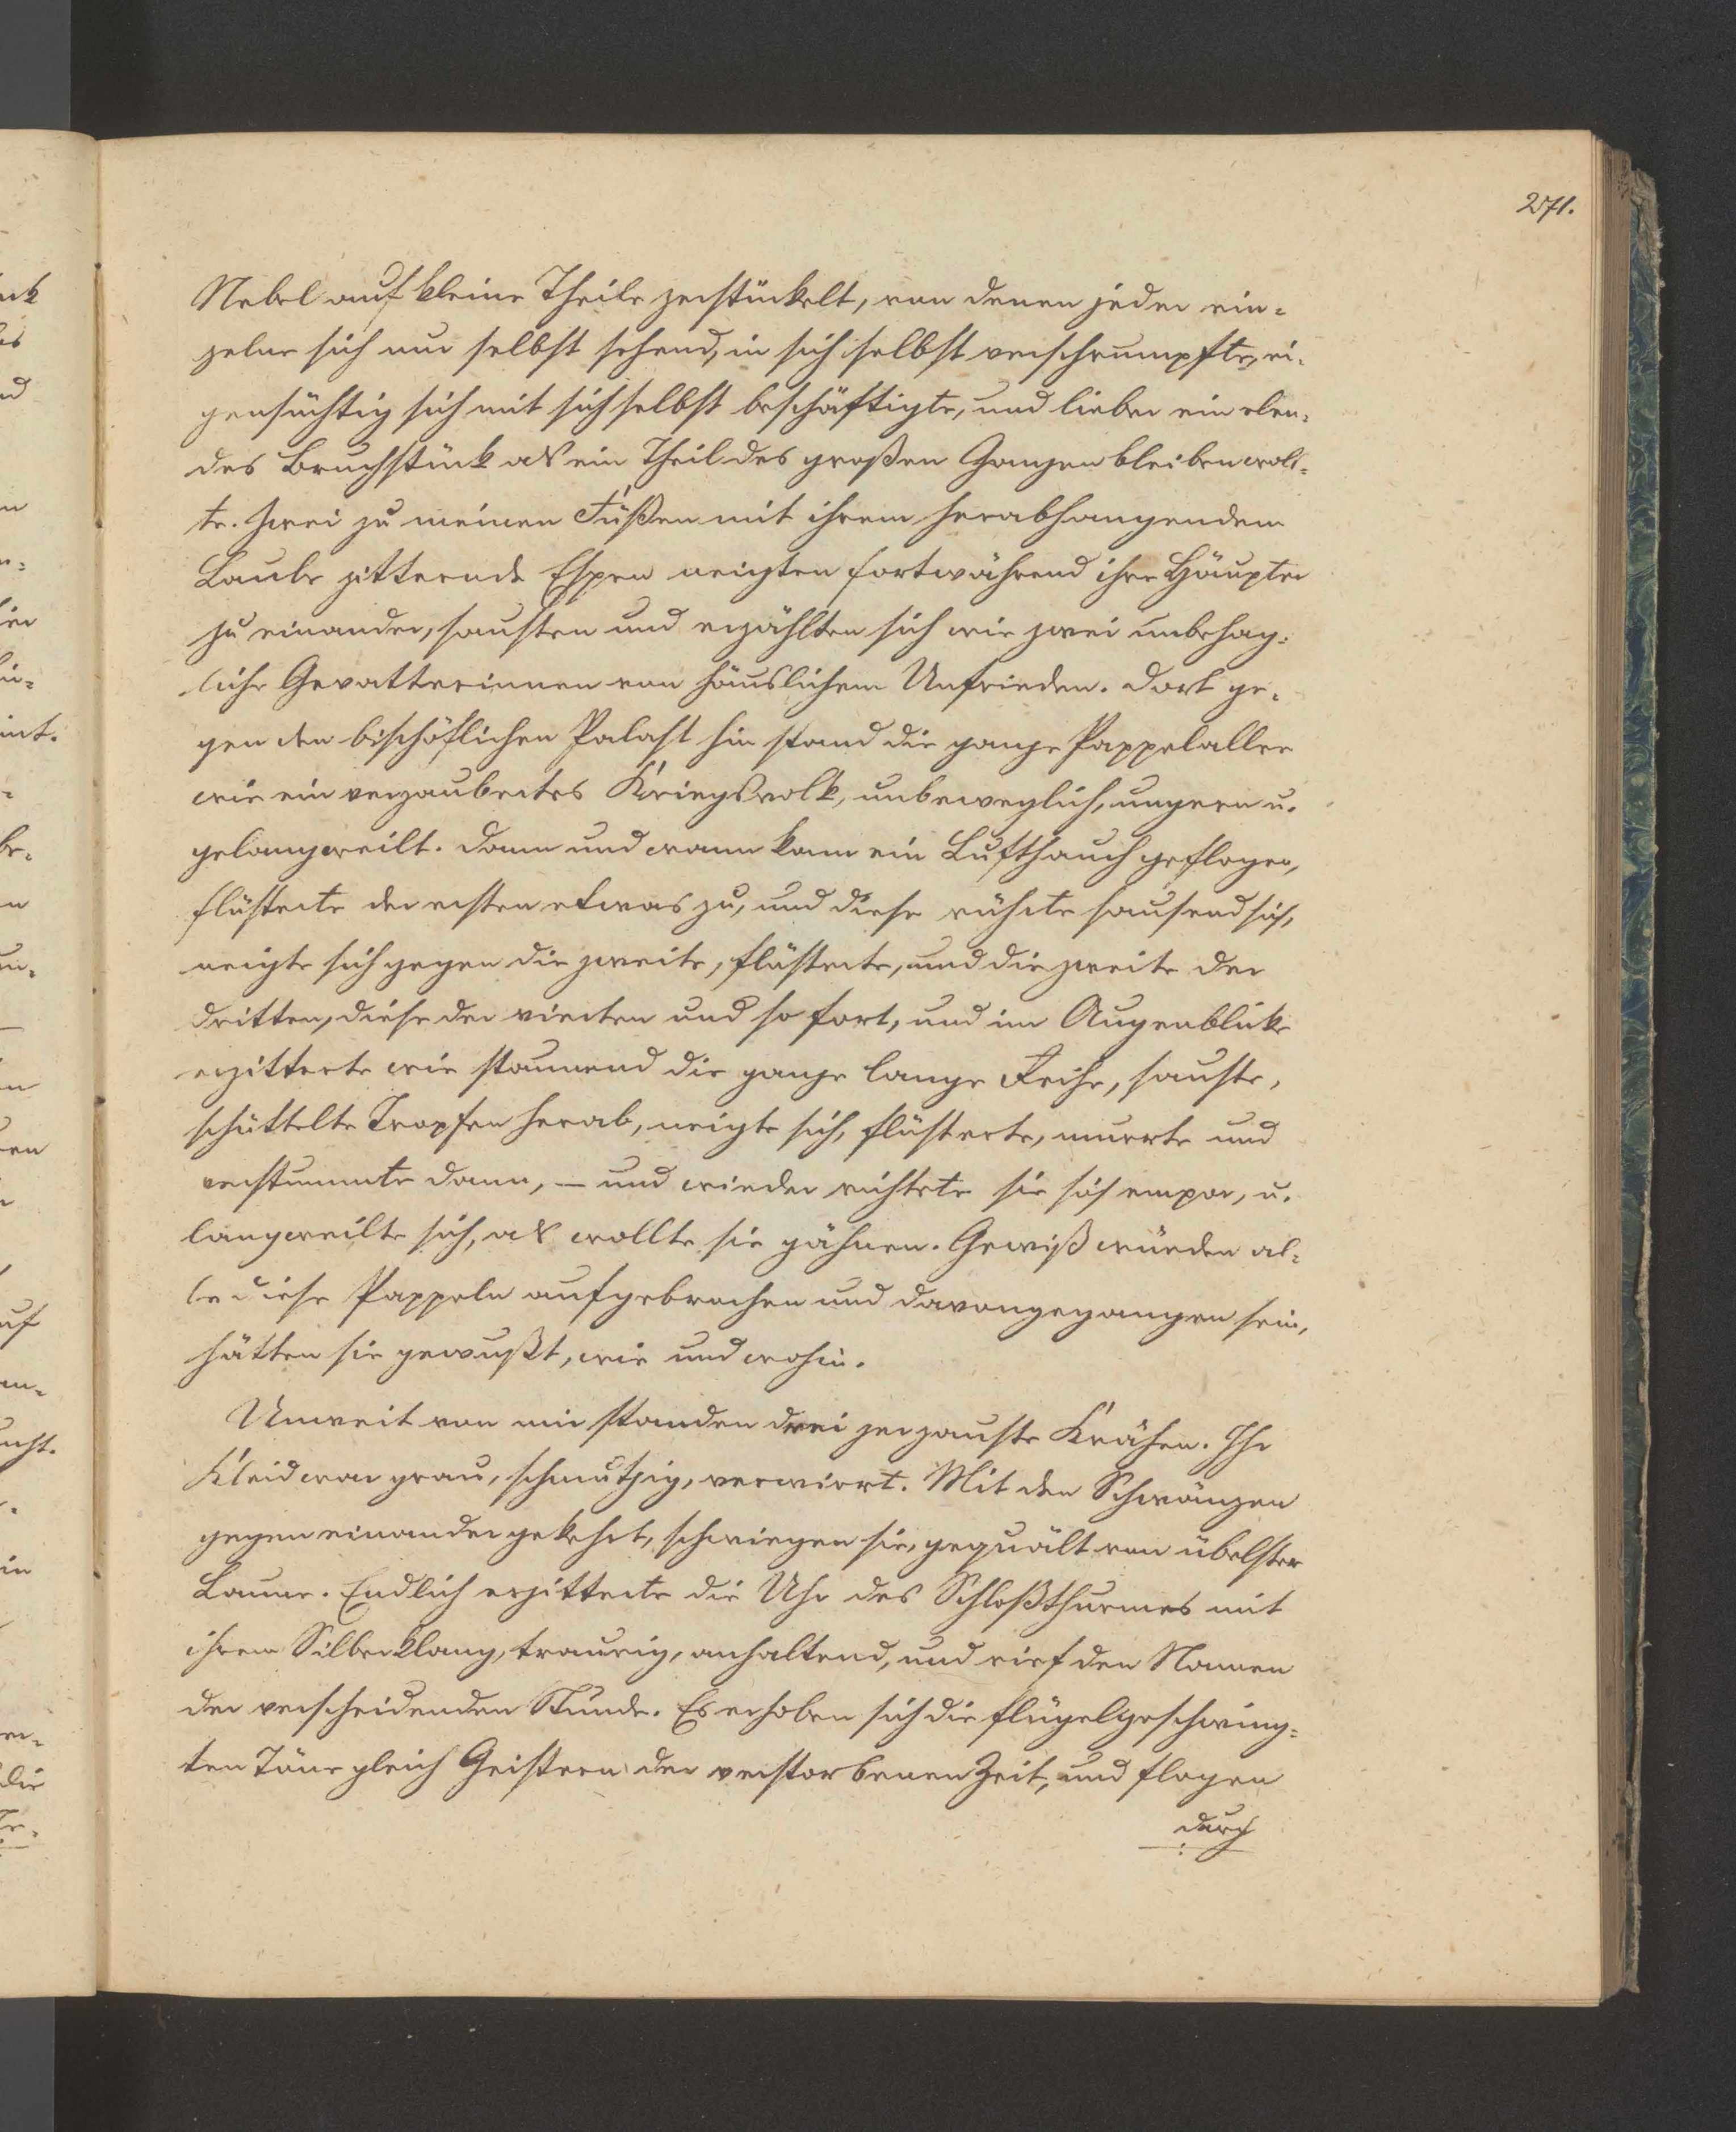 271.
Nebel auf kleine Theile zerstückelt, von denen jeder ein-
zelne sich nur selbst sehend, in sich selbst verschrumpfte, ei-
gensüchtig sich mit sich selbst beschäftigte, und lieber ein elen-
des Bruchstück als ein Theil des großen Ganzen bleiben woll-
te. Zwei zu meinen Füßen mit ihrem herabhangendem
Laube zitternde Espen neigten fortwährend ihre Häupter
zu einander, sausten und erzählten sich wie zwei unbehag-
liche Gevatterinnen von häuslichem Unfrieden. Dort ge-
gen den bischöflichen Palast hin stand die ganze Pappelallee
wie ein verzaubertes Kriegsvolk, unbeweglich, ungern u.
gelangweilt. Dann und wann kam ein Lufthauch geflogen,
flüsterte der ersten etwas zu, und diese rührte sausend sich,
neigte sich gegen die zweite, flüsterte, und die zweite der
dritten, diese der vierten und so fort, und im Augenblicke
erzitterte wie staunend die ganze lange Reihe, sauste,
schüttelte Tropfen herab, neigte sich, flüsterte, murrte und
verstummte dann, – und wieder richtete sie sich empor, u.
langweilte sich, als wollte sie gähnen. Gewiß würden al-
le diese Pappeln aufgebrochen und davongegangen sein,
hätten sie gewußt, wie und wohin.
Unweit von mir standen drei zerzauste Krähen. Ihr
Kleid war grau, schmutzig, verwirrt. Mit den Schwänzen
gegen einander gekehrt, schwiegen sie, gequält von übelster
Laune. Endlich erzitterte die Uhr des Schloßthurmes mit
ihrem Silberklang, traurig, anhaltend, und rief den Namen
der verscheidenden Stunde. Es erhoben sich die flügelgeschwing-
ten Töne gleich Geistern der verstorbenen Zeit, und flogen
durch